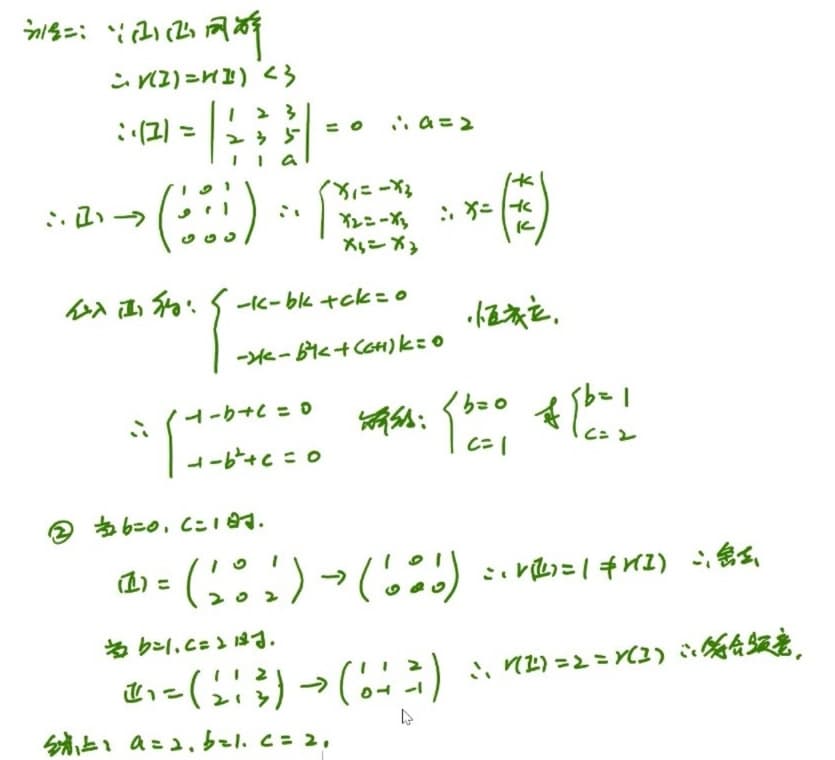 法二: ∵(I)(II)同解
∴ r(I)=r(II) <3
∴ (I) = | 1 2 3 ; 2 3 5 ; 1 1 a | = 0 ∴ a=2
∴ (I) → ( 1 0 1 ; 0 1 1 ; 0 0 0 ) ∴ { x₁=-x₃ ; x₂=-x₃ ; x₃=x₃ ∴ x= ( -k ; -k ; k )
代入(II)知: { -k-bk+ck=0 ; -2k-b²k+(c+1)k=0 恒成立.
∴ { -1-b+c=0 ; -1-b²+c=0 解得: { b=0 ; c=1 或 { b=1 ; c=2
② 当b=0, c=1时.
(II) = ( 1 0 1 ; 2 0 2 ) → ( 1 0 1 ; 0 0 0 ) ∴ r(II)=1≠r(I) ∴舍去
当b=1, c=2时.
(II) = ( 1 1 2 ; 2 1 3 ) → ( 1 1 2 ; 0 -1 -1 ) ∴ r(II)=2=r(I) ∴符合题意.
综上: a=2, b=1. c=2.